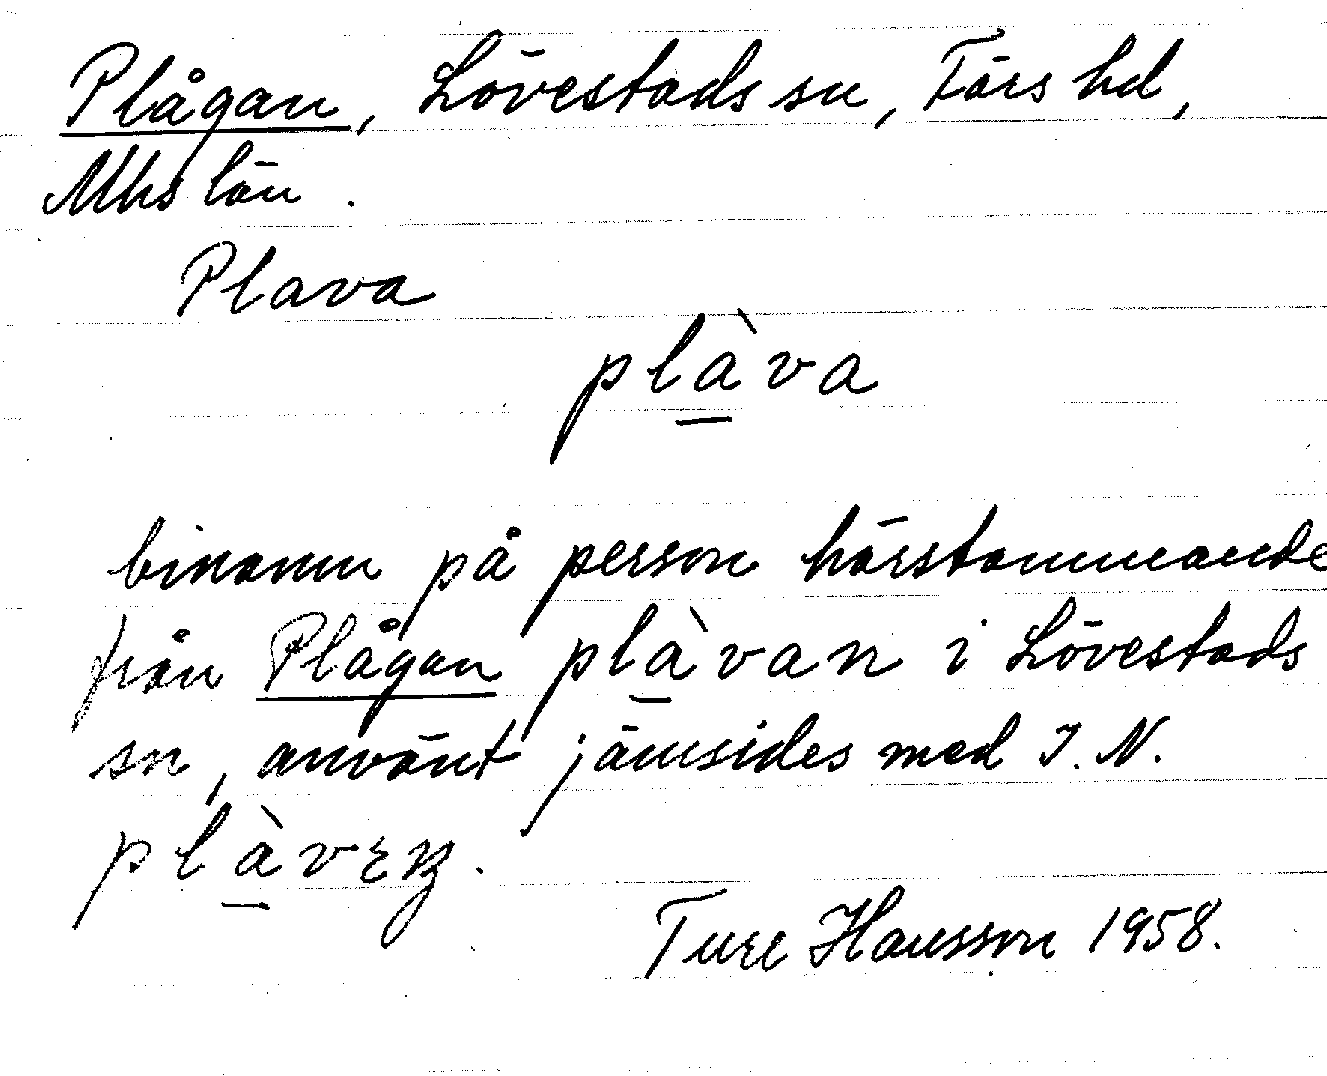 Plågan, Lövestads sn, Färs hd,
Mhs län.
Plava
plà̲va
binamn på person härstammande
från Plågan plà̲van i Lövestads
sn, använt jämsides med I. N.
plà̲vɛɴ.
Ture Hansson 1958.